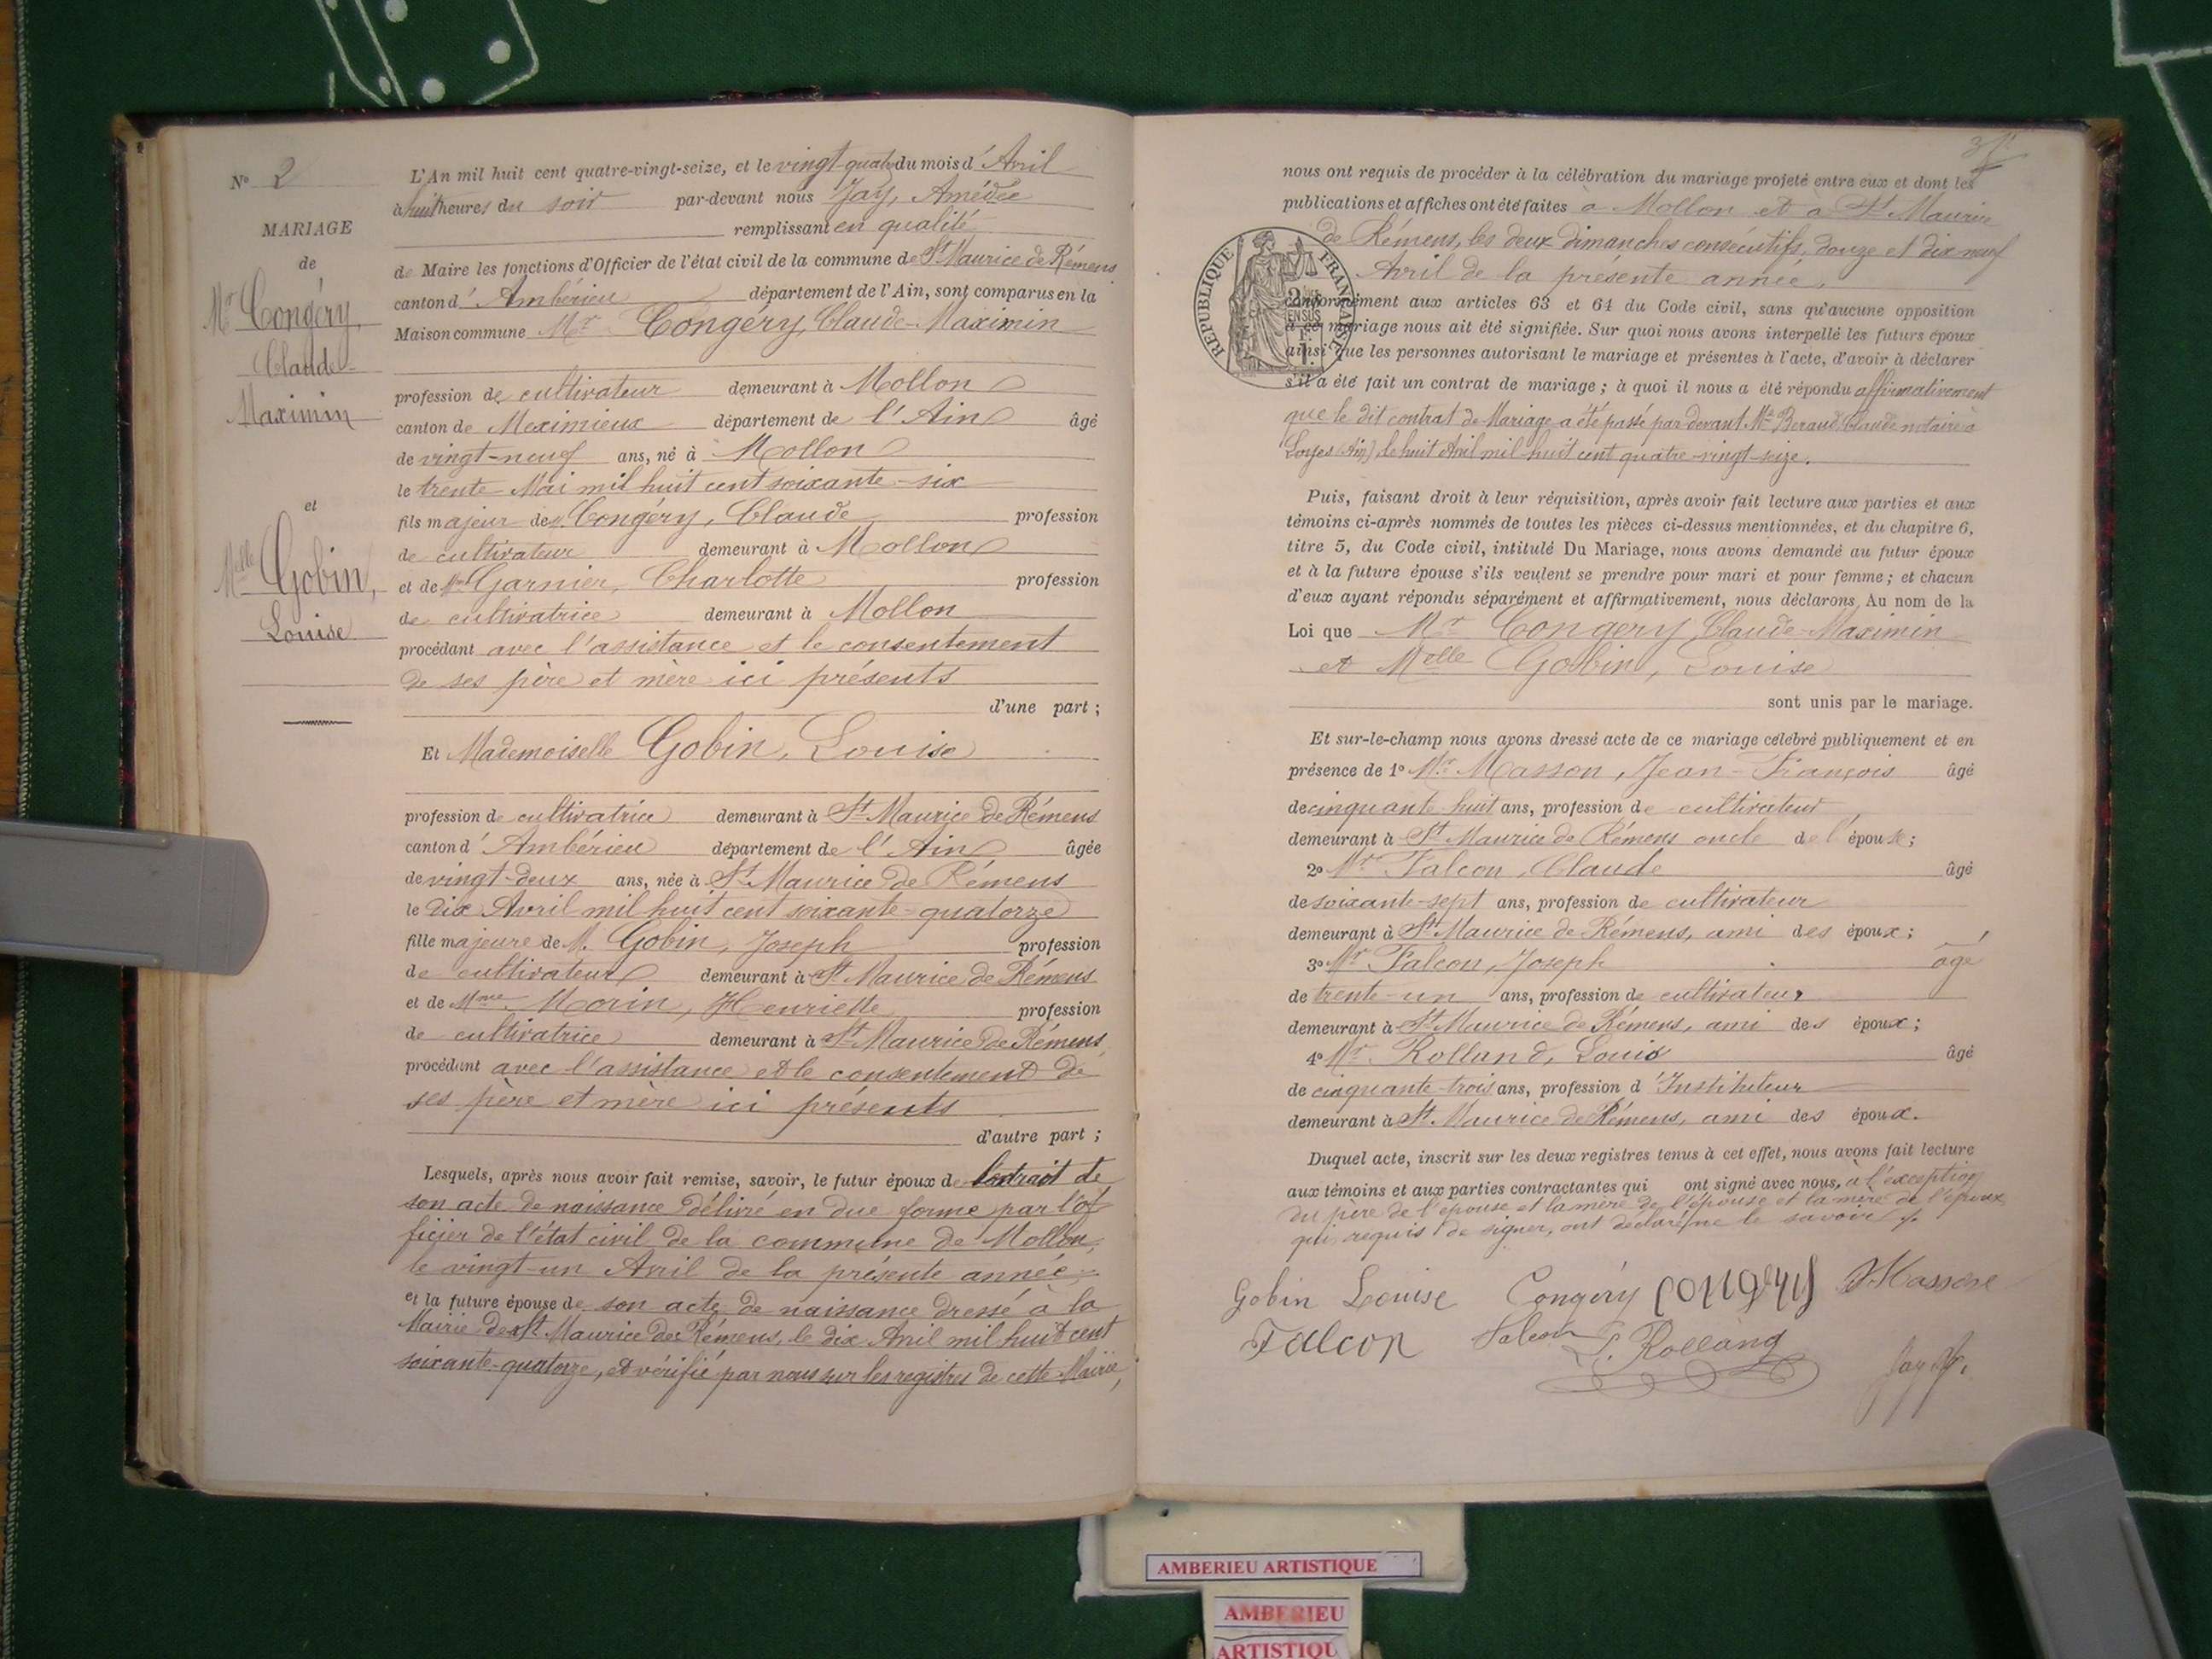 N° 2
MARIAGE
de
Mr Congéry,
Claude-
Maximin
et
Melle Gobin,
Louise
L'An mil huit cent quatre-vingt-seize, et le vingt-quatre du mois d'Avril
à huit heures du soir par-devant nous Jay, Amédée
remplissant en qualité
de Maire les fonctions d'Officier de l'état civil de la commune de St Maurice de Rémens
canton d'Ambérieu département de l'Ain, sont comparus en la
Maison commune Mr Congéry, Claude-Maximin
profession de cultivateur demeurant à Mollon
canton de Meximieux département de l'Ain âgé
de vingt-neuf ans, né à Mollon
le trente Mai mil huit cent soixante-six
fils majeur de M. Congéry, Claude profession
de cultivateur demeurant à Mollon
et de Mme Garnier, Charlotte profession
de cultivatrice demeurant à Mollon
procédant avec l'assistance et le consentement
de ses père et mère ici présents
d'une part ;
Et Mademoiselle Gobin, Louise
profession de cultivatrice demeurant à St Maurice de Rémens
canton d'Ambérieu département de l'Ain âgée
de vingt-deux ans, née à St Maurice de Rémens
le dix Avril mil huit cent soixante-quatorze
fille majeure de M. Gobin, Joseph profession
de cultivateur demeurant à St Maurice de Rémens
et de Mme Morin, Henriette profession
de cultivatrice demeurant à St Maurice de Rémens
procédant avec l'assistance et le consentement de
ses père et mère ici présents
d'autre part ;
Lesquels, après nous avoir fait remise, savoir, le futur époux de l'extrait de
son acte de naissance délivré en due forme par l'of
ficier de l'état civil de la commune de Mollon,
le vingt-un Avril de la présente année,
et la future épouse de son acte de naissance dressé à la
Mairie de St Maurice de Rémens, le dix Avril mil huit cent
soixante-quatorze, et vérifié par nous sur les registres de cette Mairie,
nous ont requis de procéder à la célébration du mariage projeté entre eux et dont les
publications et affiches ont été faites à Mollon et à St Maurice
de Rémens, les deux dimanches consécutifs, douze et dix-neuf
Avril de la présente année,
RÉPUBLIQUE FRANÇAISE
conformément aux articles 63 et 64 du Code civil, sans qu'aucune opposition
à ce mariage nous ait été signifiée. Sur quoi nous avons interpellé les futurs époux
ainsi que les personnes autorisant le mariage et présentes à l'acte, d'avoir à déclarer
s'il a été fait un contrat de mariage ; à quoi il nous a été répondu affirmativement
que le dit contrat de Mariage a été passé par devant Me Beraud, Claude notaire à
Loyes (Ain), le huit Avril mil huit cent quatre-vingt-seize.
Puis, faisant droit à leur réquisition, après avoir fait lecture aux parties et aux
témoins ci-après nommés de toutes les pièces ci-dessus mentionnées, et du chapitre 6,
titre 5, du Code civil, intitulé Du Mariage, nous avons demandé au futur époux
et à la future épouse s'ils veulent se prendre pour mari et pour femme ; et chacun
d'eux ayant répondu séparément et affirmativement, nous déclarons, Au nom de la
Loi que Mr Congery, Claude-Maximin
et Melle Gobin, Louise
sont unis par le mariage.
Et sur-le-champ nous avons dressé acte de ce mariage célébré publiquement et en
présence de 1° Mr Masson, Jean-François âgé
de cinquante huit ans, profession de cultivateur
demeurant à St Maurice de Rémens oncle de l'épouse ;
2° Mr Falcon, Claude âgé
de soixante-sept ans, profession de cultivateur
demeurant à St Maurice de Rémens, ami des époux ;
3° Mr Falcon, Joseph âgé
de trente-un ans, profession de cultivateur
demeurant à St Maurice de Rémens, ami des époux ;
4° Mr Rolland, Louis âgé
de cinquante-trois ans, profession d'Instituteur
demeurant à St Maurice de Rémens, ami des époux.
Duquel acte, inscrit sur les deux registres tenus à cet effet, nous avons fait lecture
aux témoins et aux parties contractantes qui ont signé avec nous, à l'exception
du père de l'épouse et la mère de l'épouse et la mère de l'époux
qui requis de signer, ont déclaré ne le savoir
Gobin Louise Congéry Congéry Masson
Falcon Falcon L. Rolland Jay
AMBERIEU ARTISTIQUE
AMBERIEU
ARTISTIQU